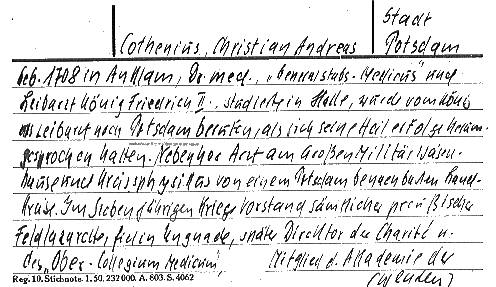 Stadt
Cothenius, Christian Andreas Potsdam
geb. 1708 in Anklam, Dr. med., "Generalstabs-Medicus" und
Leibarzt König Friedrich II., studierte in Halle, wurde vom König
als Leibarzt nach Potsdam berufen, als sich seine Heilerfolge herum-
gesprochen hatten. Nebenher Arzt am Großen Militärwaisen-
hause und Kreisphysikus von einem Potsdam benachbarten Land-
kreise. Im Siebenjährigen Kriege Vorstand sämtlicher preußischer
Feldlazarette, fiel in Ungnade, später Direktor der Charité u.
des "Ober-Collegium Medicum", Mitglied d. Akademie der
Reg. 10. Stichnote. 1. 50. 232 000. A. 803. S. 4062